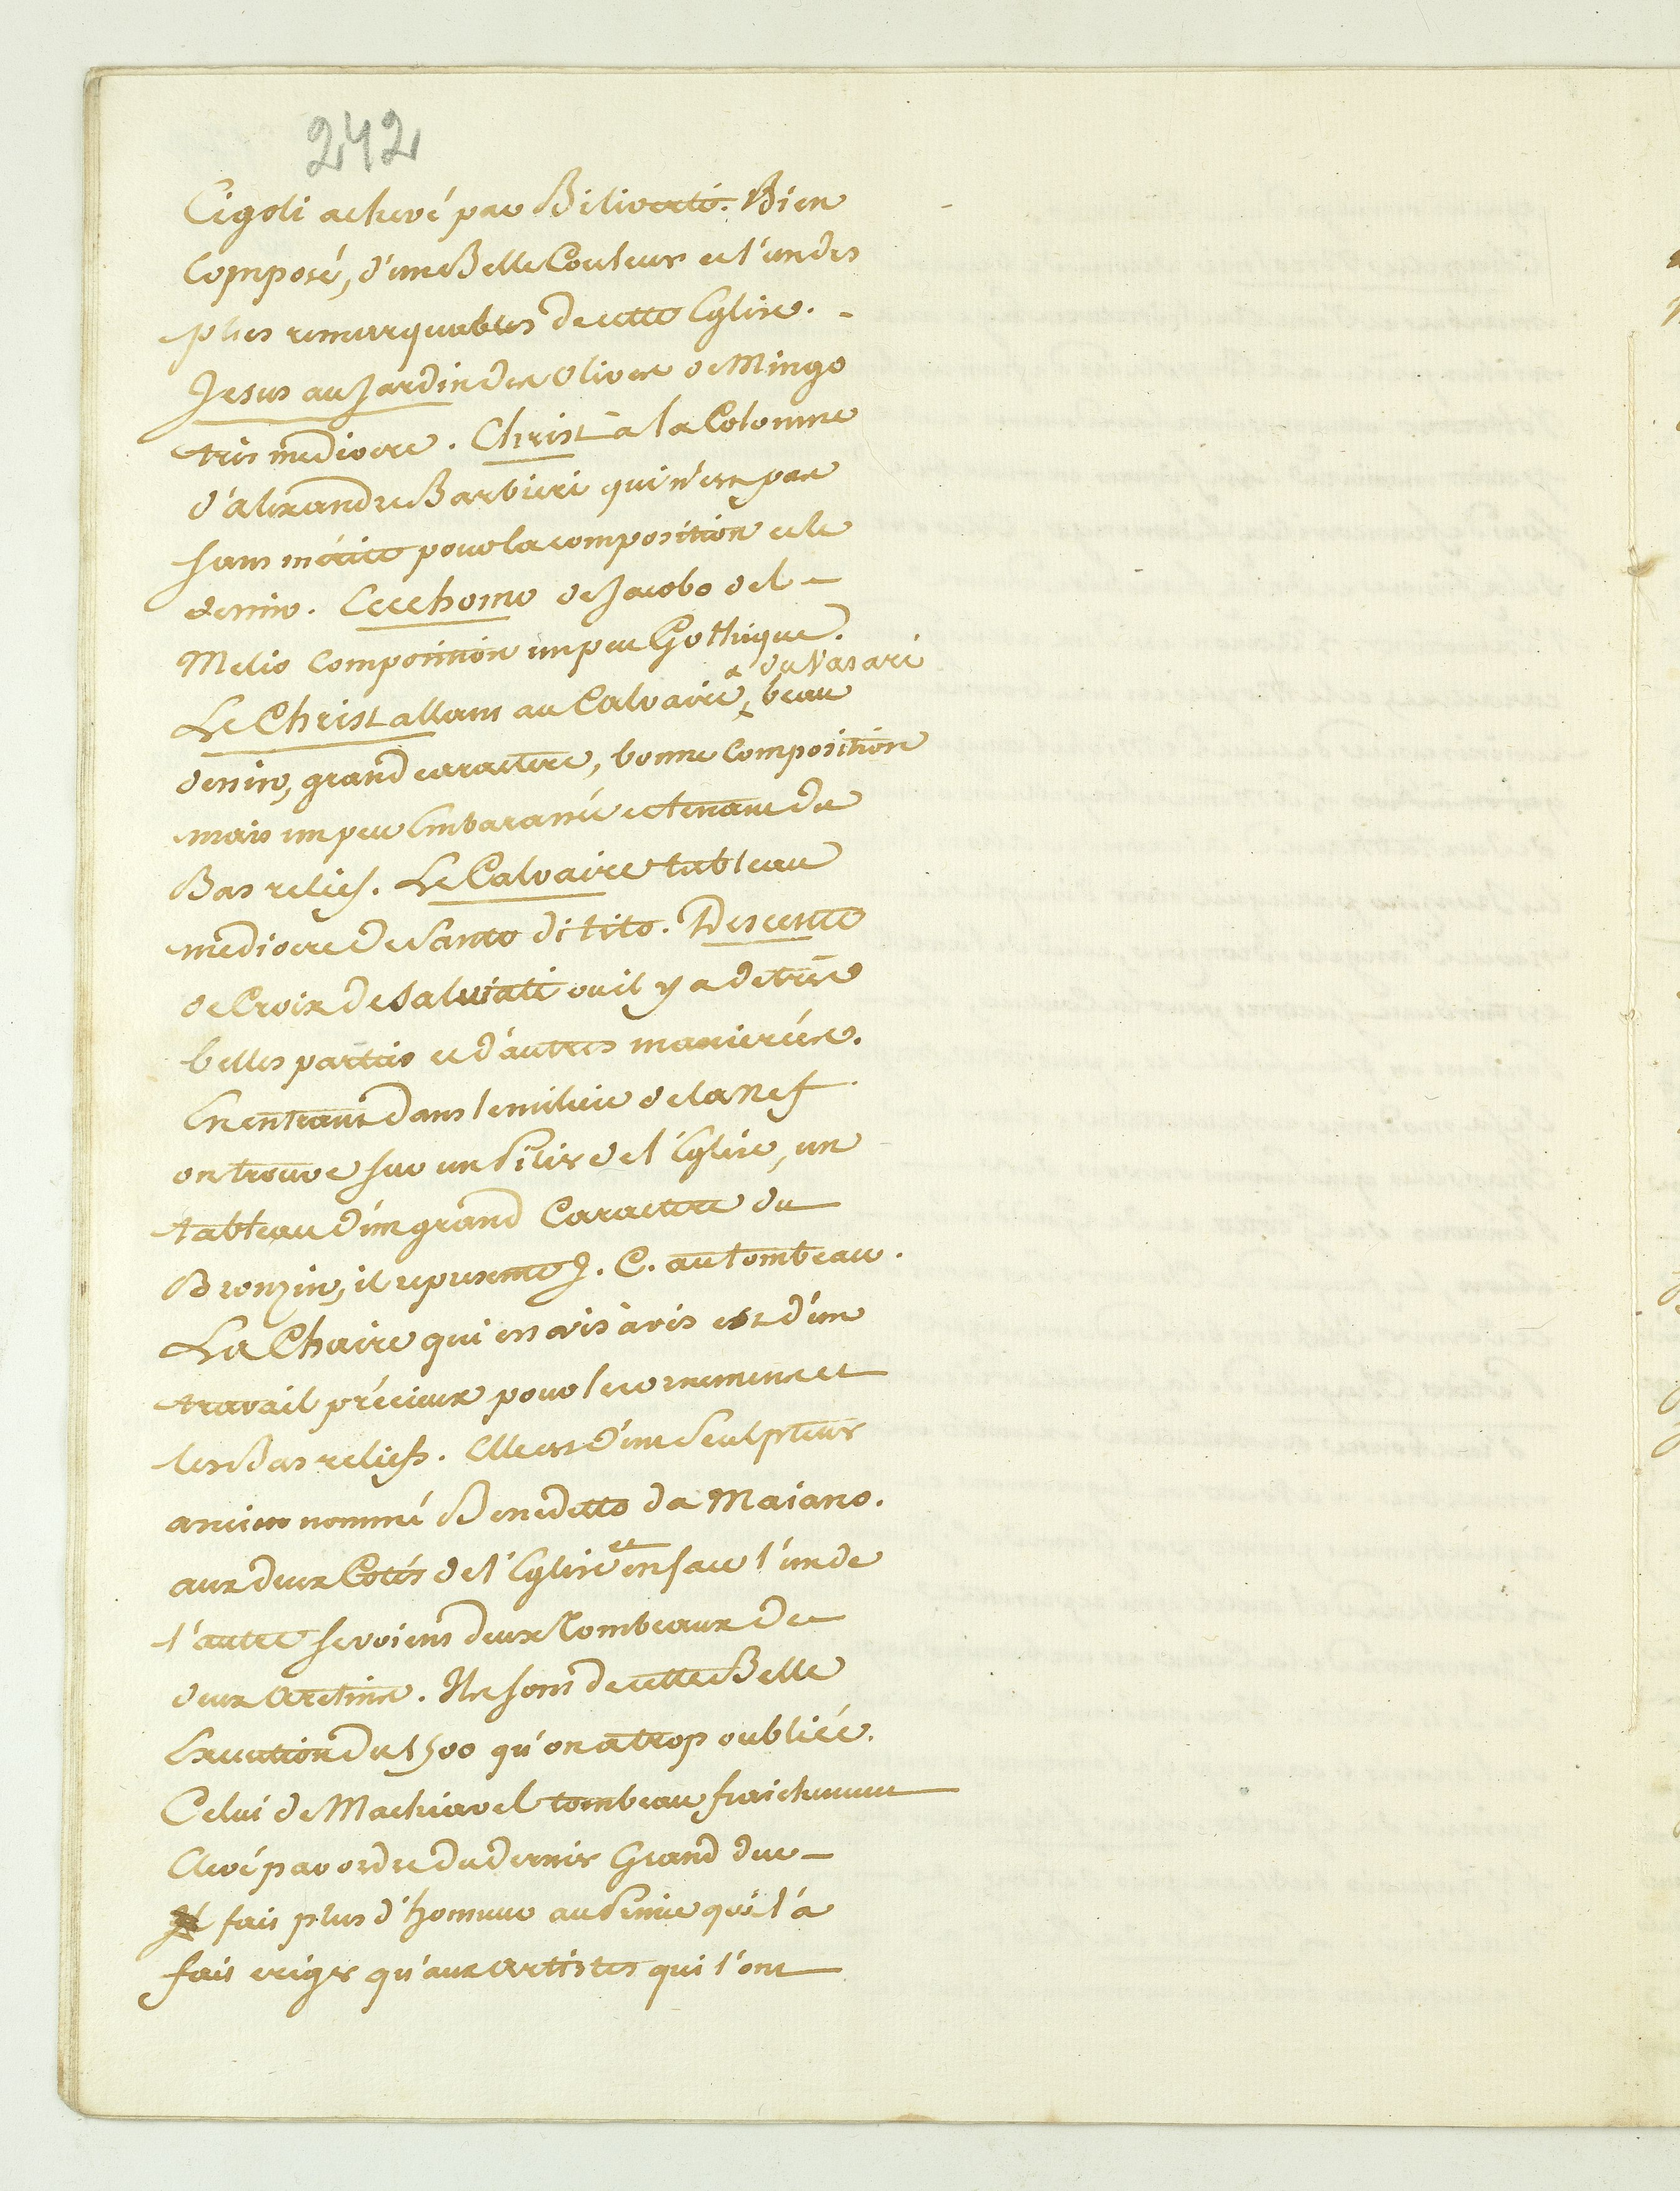 242
Cigoli achevé par Biliverti. Bien
Composé, d'une Belle Couleur et l'un des
plus remarquables de cette Eglise. -
Jesus au Jardin des Olives de Mingo
très mediocre. Christ à la Colomne
d'alexandre Barbieri qui n'est pas
sans mérite pour la composition et le
dessin. Ecce homo de Jacobo del -
Melio Composition un peu Gothique.
Le Christ allant au Calvaire, du Vasari beau
dessin, grand caractere, bonne Composition
mais un peu Embarassée et tenant du
Bas relief. Le Calvaire tableau
mediocre de Santo di tito. Descente
de Croix de Salviati ou il y a de très
belles parties et d'autres manierées.
En entrant dans le milieu de la Nef
on trouve sur un Pilier de l'Eglise, un
tableau d'un grand Caractere du
Bronzin, il represente J. C. au tombeau.
La Chaire qui est vis à vis est d'un
travail précieux pour les ornemens et
les Bas reliefs. Elle est d'un Sculpteur
ancien nommé Benedetto da Maiano.
aux deux Cotés de l'Eglise et en face l'un de
l'autre se voient deux Tombeaux de
deux Aretins. Ils sont de cette Belle
Execution du 1500 qu'on a trop oubliée.
Celui de Machiavel tombeau fraichement
Elevé par ordre du dernier Grand duc -
fait plus d'honneur au Genie qui l'a
fait eriger qu'aux Artistes qui l'ont